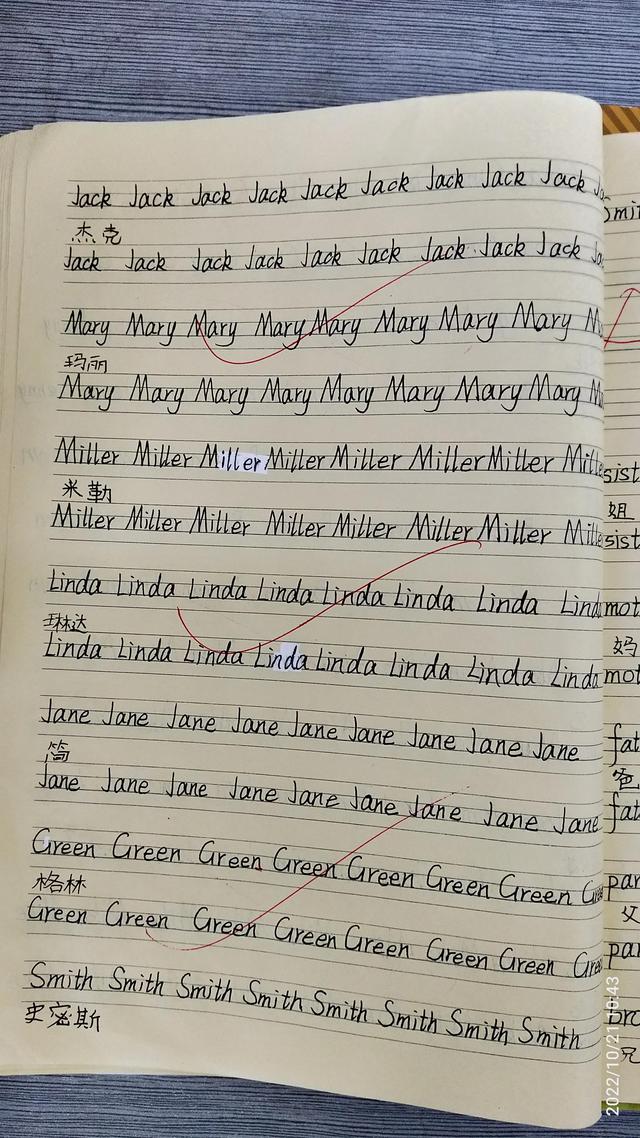 Jack Jack Jack Jack Jack Jack Jack Jack Jack
杰克
Jack Jack Jack Jack Jack Jack Jack Jack Jack
Mary Mary Mary Mary Mary Mary Mary Mary
玛丽
Mary Mary Mary Mary Mary Mary Mary Mary
Miller Miller Miller Miller Miller Miller Miller
米勒
Miller Miller Miller Miller Miller Miller Miller
Linda Linda Linda Linda Linda Linda Linda
琳达
Linda Linda Linda Linda Linda Linda Linda Linda
Jane Jane Jane Jane Jane Jane Jane Jane Jane
简
Jane Jane Jane Jane Jane Jane Jane Jane Jane
Green Green Green Green Green Green Green
格林
Green Green Green Green Green Green Green
Smith Smith Smith Smith Smith Smith Smith Smith
史密斯
sist
姐
sist
mot
妈
mot
fat
爸
fat
par
父
par
bro
兄
2022/10/21 10:43